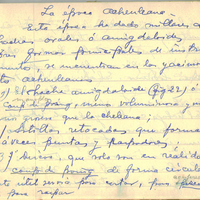 La época acheuleana
Esta época ha dado millares de
hachas ovales ó amigdaloides
formas principales de instru
mentos, se encuentran en los yacim
acheuleanos
El hacha amigdaloide (fig 22) ó
coup de poing, menos voluminosa y
más que la chelleana;
retocadas que forman
á veces puntas y raspadores
que solo son en realidad
coups de poing de forma
este util servia para cortar, pero
para raspar